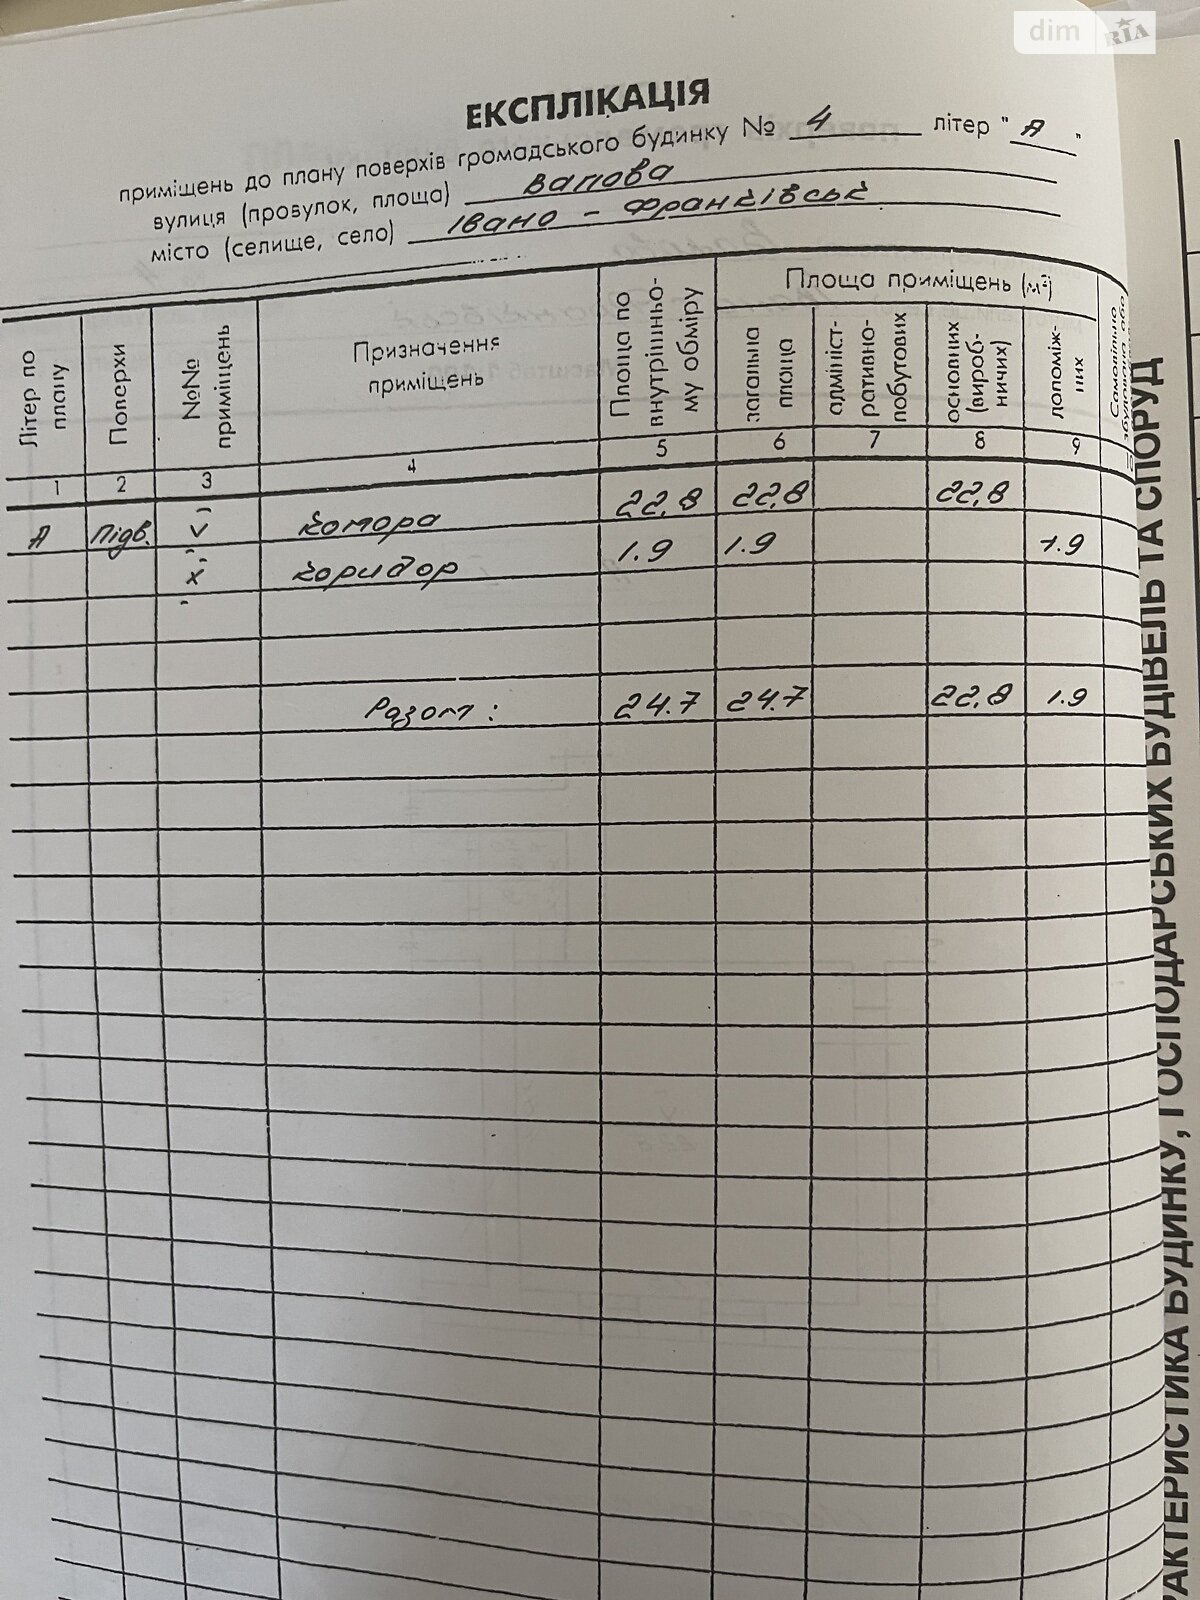 dim RIA
ЕКСПЛІКАЦІЯ
приміщень до плану поверхів громадського будинку № 4 літер "А"
вулиця (провулок, площа) Вапова
місто (селище, село) Івано-Франківськ
Літер по плану
Поверхи
№№ приміщень
Призначення приміщень
Площа по внутрішньо-му обміру
Площа приміщень (м²)
загальна площа
адмініст-ративно-побутових
основних (вироб-ничих)
допоміж-них
Самовільно
1 2 3 4 5 6 7 8 9
А Підв. V комора 22,8 22,8 22,8
X коридор 1.9 1.9 1.9
Разом: 24.7 24.7 22,8 1.9
РАКТЕРИСТИКА БУДИНКУ, ГОСПОДАРСЬКИХ БУДІВЕЛЬ ТА СПОРУД